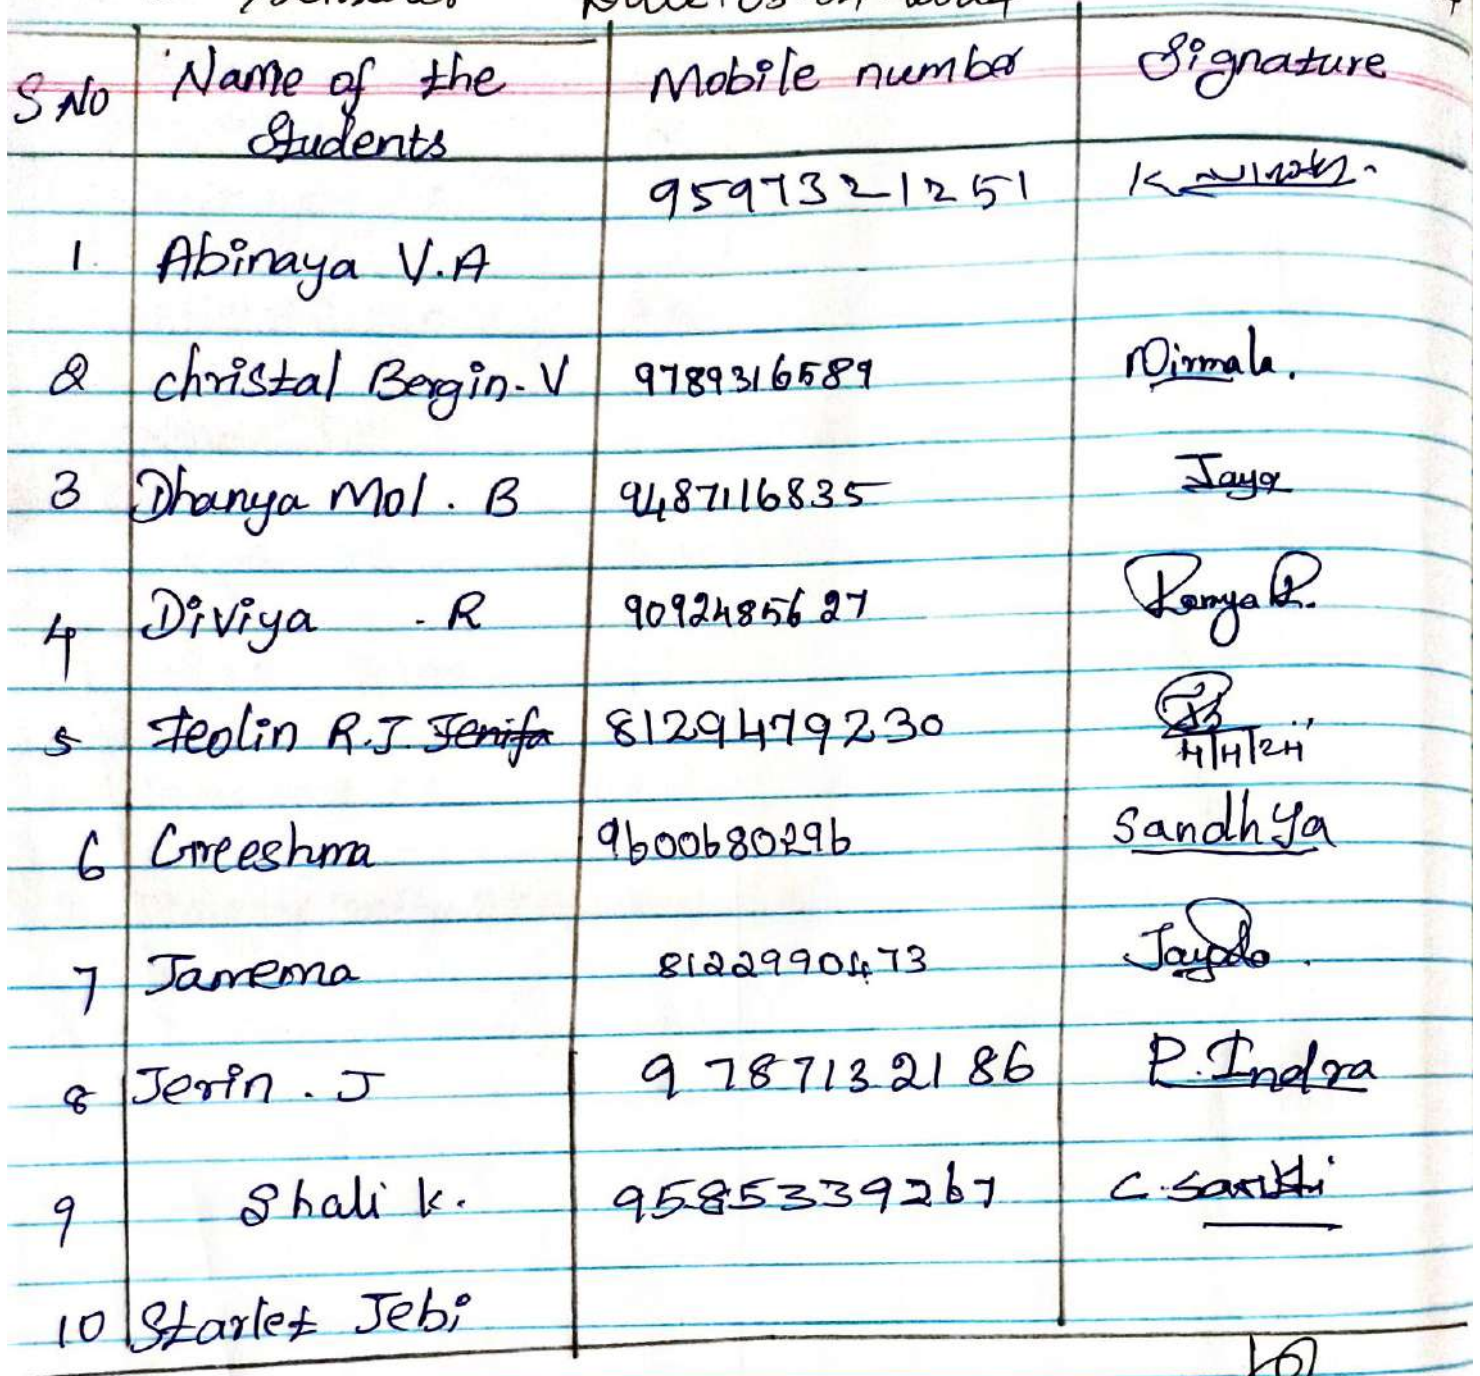 S NO Name of the Students Mobile number Signature
9597321251
1. Abinaya V.A
2 Christal Bergin. V 9789316589 Nirmala.
3 Dhanya Mol. B 9487116835 Jaya
4 Diviya . R 9092485627 Ramya R.
5 Feolin R.J. Jenifa 8129479230 4/4/24
6 Greeshma 9600680296 Sandhya
7 Jamema 8122990473
8 Jerin . J 9787132186 P. Indra
9 Shali k. 9585339267
10 Starlet Jebi